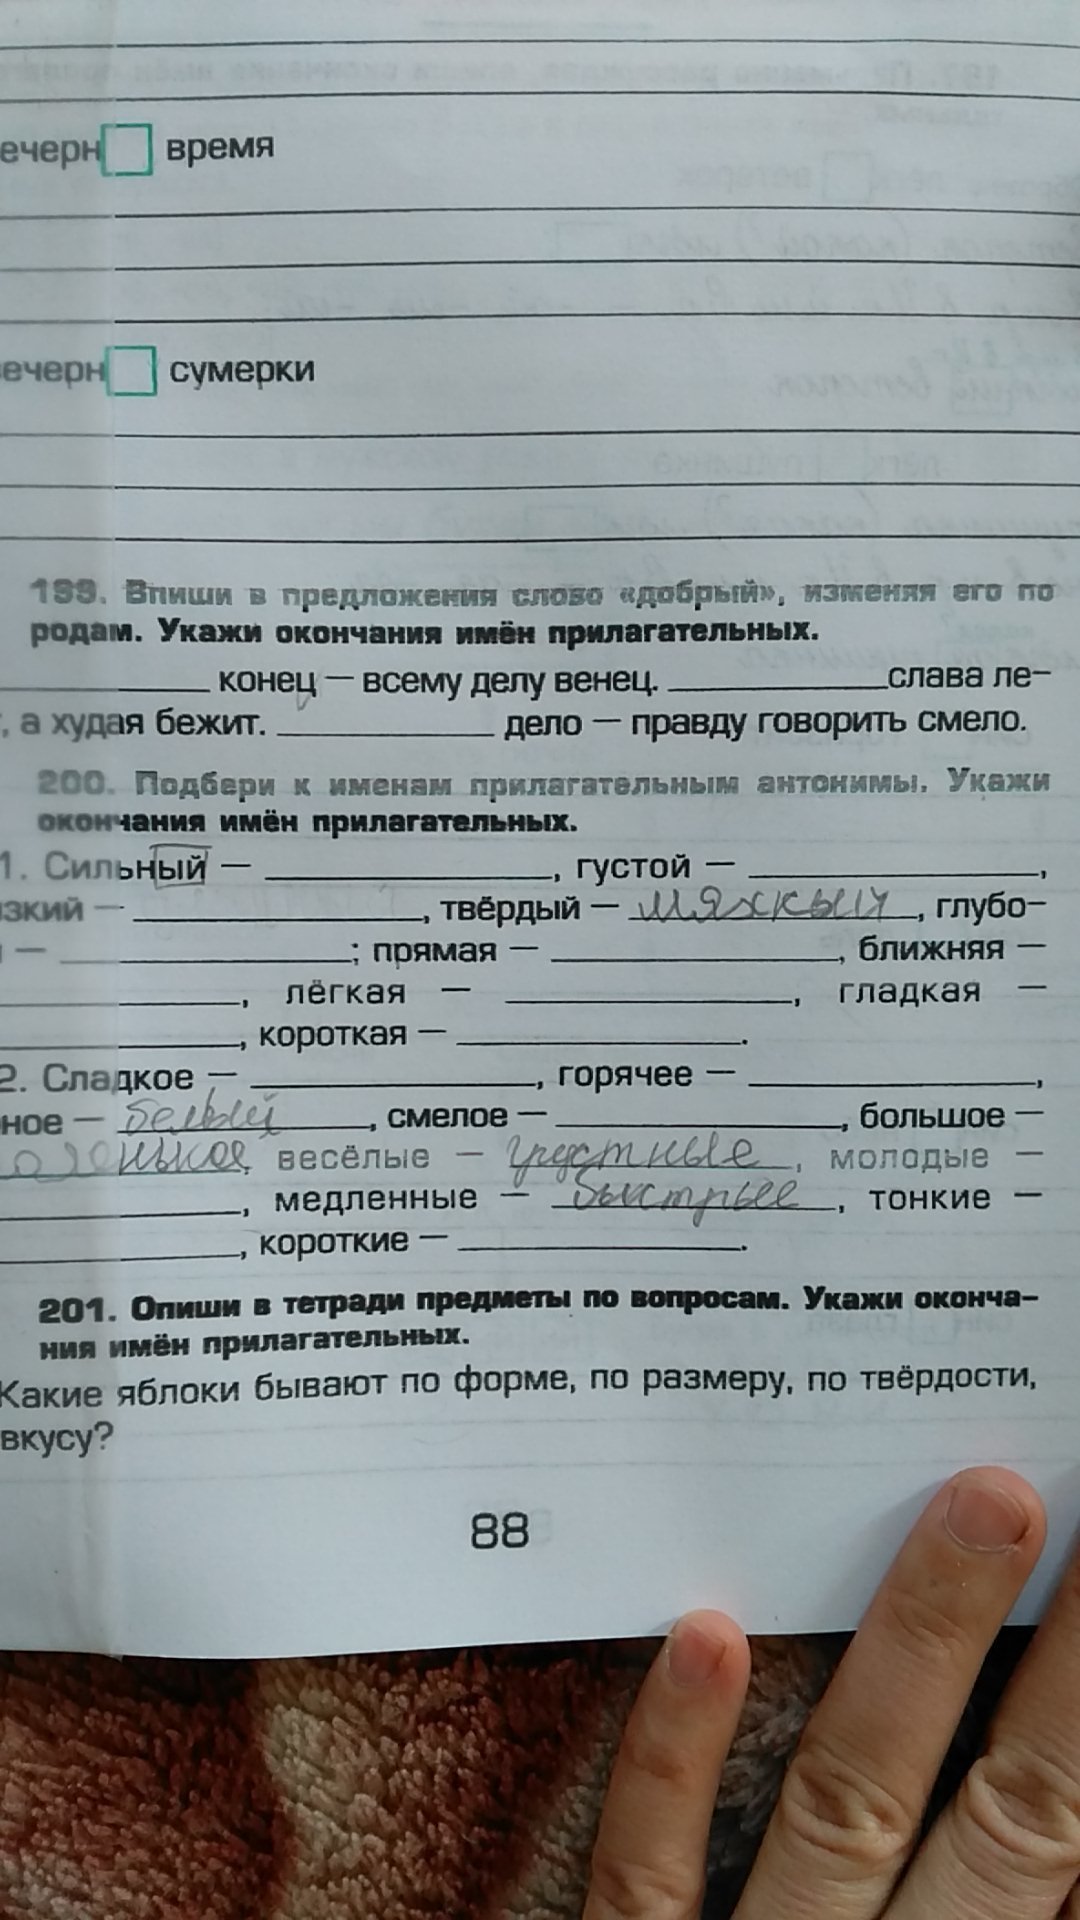 ечерн время
ечерн сумерки
199. Впиши в предложения слово «добрый», изменяя его по
родам. Укажи окончания имён прилагательных.
конец — всему делу венец. слава ле-
, а худая бежит. дело — правду говорить смело.
200. Подбери к именам прилагательным антонимы. Укажи
окончания имён прилагательных.
1. Сильный — , густой — ,
зкий — , твёрдый — мяхкый, глубо-
— ; прямая — , ближняя —
, лёгкая — , гладкая —
, короткая — .
2. Сладкое — , горячее — ,
ное — белый, смелое — , большое —
весёлые — грустные, молодые —
, медленные — быстрые, тонкие —
, короткие — .
201. Опиши в тетради предметы по вопросам. Укажи оконча-
ния имён прилагательных.
Какие яблоки бывают по форме, по размеру, по твёрдости,
вкусу?
88